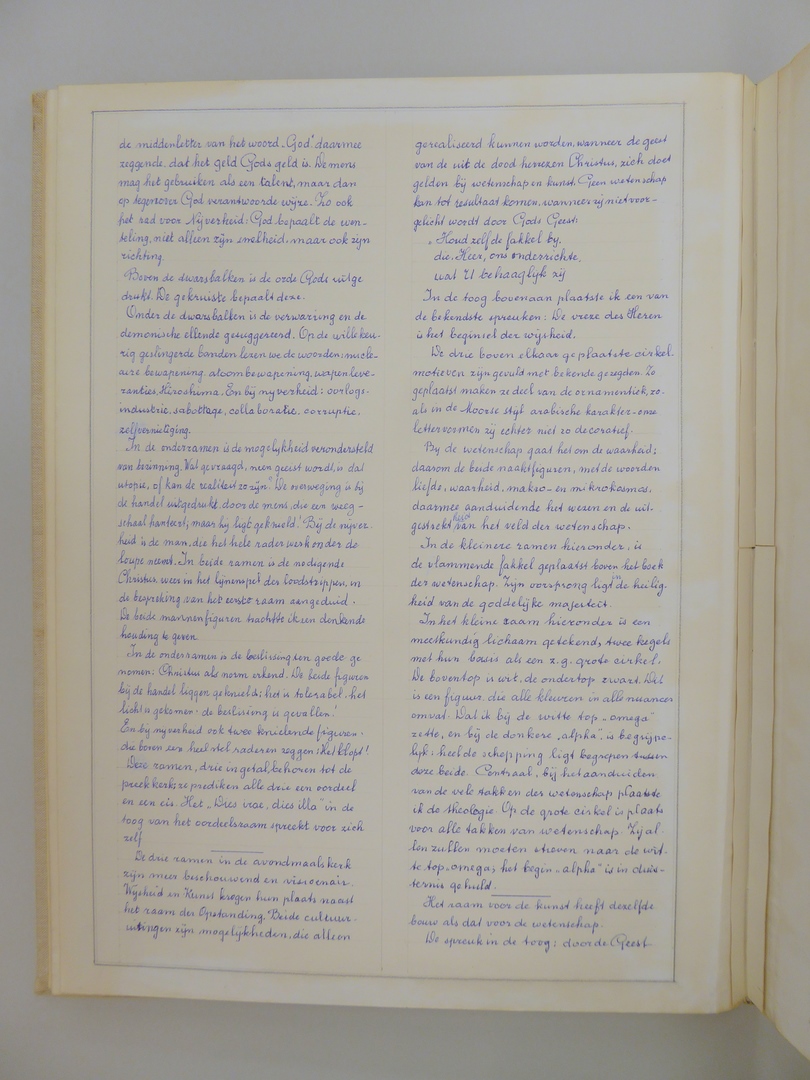 de middenletter van het woord „God" daarmee
zeggende, dat het geld Gods geld is. De mens
mag het gebruiken als een talent, maar dan
op tegenover God verantwoorde wijze. Zo ook
het rad voor Nijverheid: God bepaalt de wen-
teling, niet alleen zijn snelheid, maar ook zijn
richting.
Boven de dwarsbalken is de orde Gods uitge
drukt. De gekruiste bepaalt deze.
Onder de dwarsbalken is de verwarring en de
demonische ellende gesuggereerd. Op de willekeu-
rig geslingerde banden lezen we de woorden: nucle-
aire bewapening, atoombewapening, wapenleve-
ranties, Hiroshima. En bij nyverheid: oorlogs-
industrie, sabottage, collaboratie, corruptie,
zelfvernietiging.
In de onderramen is de mogelijkheid verondersteld
van bezinning. Wat gevraagd, nieu geest wordt, is dat
utopie, of kan de realiteit zo zijn? De overweging is bij
de handel uitgedrukt, door de mens, die een weeg-
schaal hanteert, maar hij ligt geknield! Bij de nijver-
heid is de man, die het hele raderwerk onder de
loupe neemt. In beide ramen is de nodigende
Christus weer in het lijnenspel der loodstrippen, in
de bespreking van het eerste raam aangeduid.
De beide mannenfiguren trachtte ik een denkende
houding te geven.
In de onderramen is de beslissing ten goede ge
nomen: Christus als norm erkend. De beide figuren
bij de handel liggen geknield; het is tolerabel. het
licht is gekomen - de beslissing is gevallen!
En bij nyverheid ook twee knielende figuren -
die boven een heel stel raderen zeggen: Het klopt!
Deze ramen, drie in getal, behoren tot de
preekkerk; ze prediken alle drie een oordeel
en een eis. Het „Dies irae, dies illa" in de
toog van het oordeelsraam spreekt voor zich
zelf
De drie ramen in de avondmaalskerk
zijn meer beschouwend en visioenair.
Wijsheid en Kunst kregen hun plaats naast
het raam der Opstanding. Beide cultuur-
uitingen zijn mogelijkheden, die alleen
gerealiseerd kunnen worden, wanneer de geest
van de uit de dood herrezen Christus, zich doet
gelden bij wetenschap en kunst. Geen wetenschap
kan tot resultaat komen, wanneer zij niet voor-
gelicht wordt door Gods Geest:
„Houd zelf de fakkel by,
die, Heer, ons onderrichte,
wat U behaaglijk zij
In de toog bovenaan plaatste ik een van
de bekendste spreuken: De vreze des Heren
is het beginsel der wijsheid.
De drie boven elkaar geplaatste cirkel.
motieven zijn gevuld met bekende gezegden. Zo
geplaatst maken ze deel van de ornamentiek, zo-
als in de Moorse styl arabische karakter - onze
lettervormen zij echter niet zo decoratief.
By de wetenschap gaat het om de waarheid;
daarom de beide naaktfiguren, met de woorden
liefde, waarheid, makro- en mikrokosmos,
daarmee aanduidende het wezen en de uit-
gestrektheid van het veld der wetenschap.
In de kleinere ramen hieronder, is
de vlammende fakkel geplaatst boven het boek
der wetenschap. Zijn oorsprong ligt in de heilig-
heid van de goddelijke majesteit.
In het kleine raam hieronder is een
meetkundig lichaam getekend; twee kegels
met hun basis als een z.g. grote cirkel.
De boventop is wit, de ondertop zwart. Dit
is een figuur, die alle kleuren in alle nuances
omvat. Dat ik bij de witte top „omega"
zette, en bij de donkere „alpha", is begrijpe-
lijk: heel de schepping ligt begrepen tussen
deze beide. Centraal, bij het aanduiden
van de vele takken der wetenschap plaatste
ik de theologie. Op de grote cirkel is plaats
voor alle takken van wetenschap. Zij al-
len zullen moeten streven naar de wit-
te top-omega; het begin „alpha" is in duis-
ternis gehuld.
Het raam voor de kunst heeft dezelfde
bouw als dat voor de wetenschap.
De spreuk in de toog: door de Geest